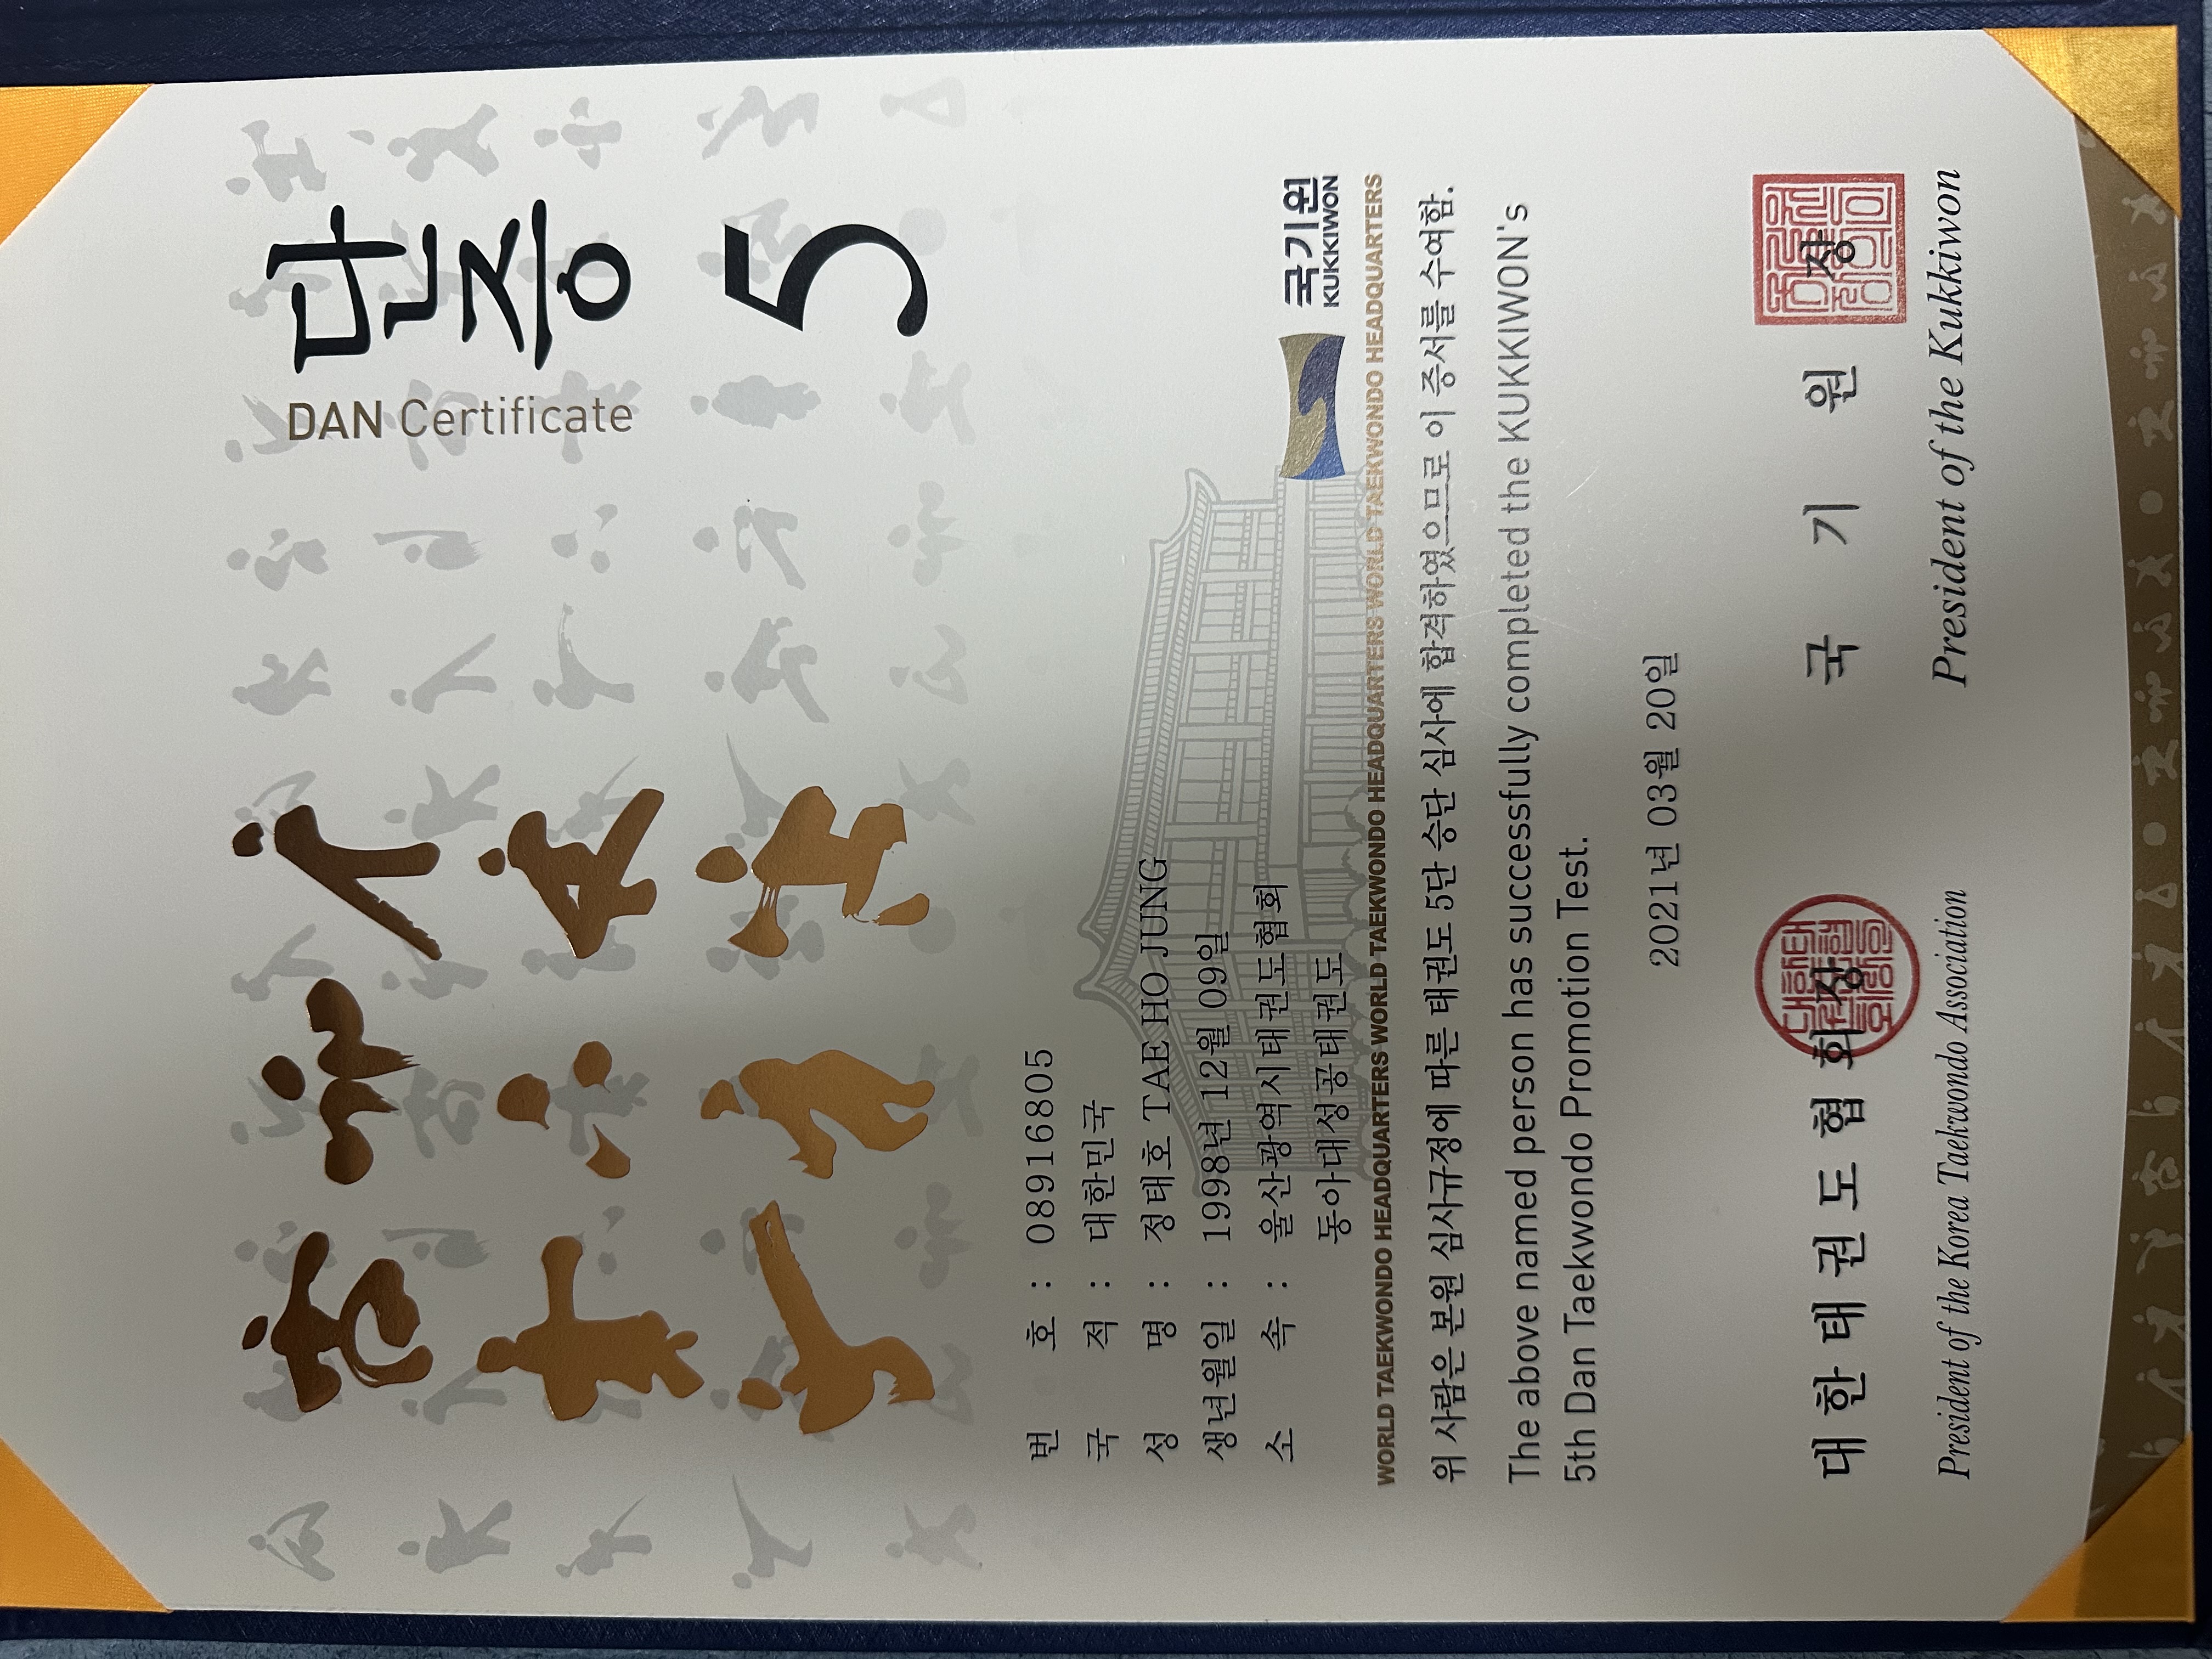 단증
DAN Certificate
5
번 호 : 08916805
국 적 : 대한민국
성 명 : 정태호 TAE HO JUNG
생년월일 : 1998년 12월 09일
소 속 : 울산광역시태권도협회
동아대성공태권도
국기원
KUKKIWON
WORLD TAEKWONDO HEADQUARTERS WORLD TAEKWONDO HEADQUARTERS WORLD TAEKWONDO HEADQUARTERS WORLD TAEKWONDO HEADQUARTERS
위 사람은 본원 심사규정에 따른 태권도 5단 승단 심사에 합격하였으므로 이 증서를 수여함.
The above named person has successfully completed the KUKKIWON's
5th Dan Taekwondo Promotion Test.
2021년 03월 20일
대 한 태 권 도 협 회 장
President of the Korea Taekwondo Association
국 기 원 장
President of the Kukkiwon